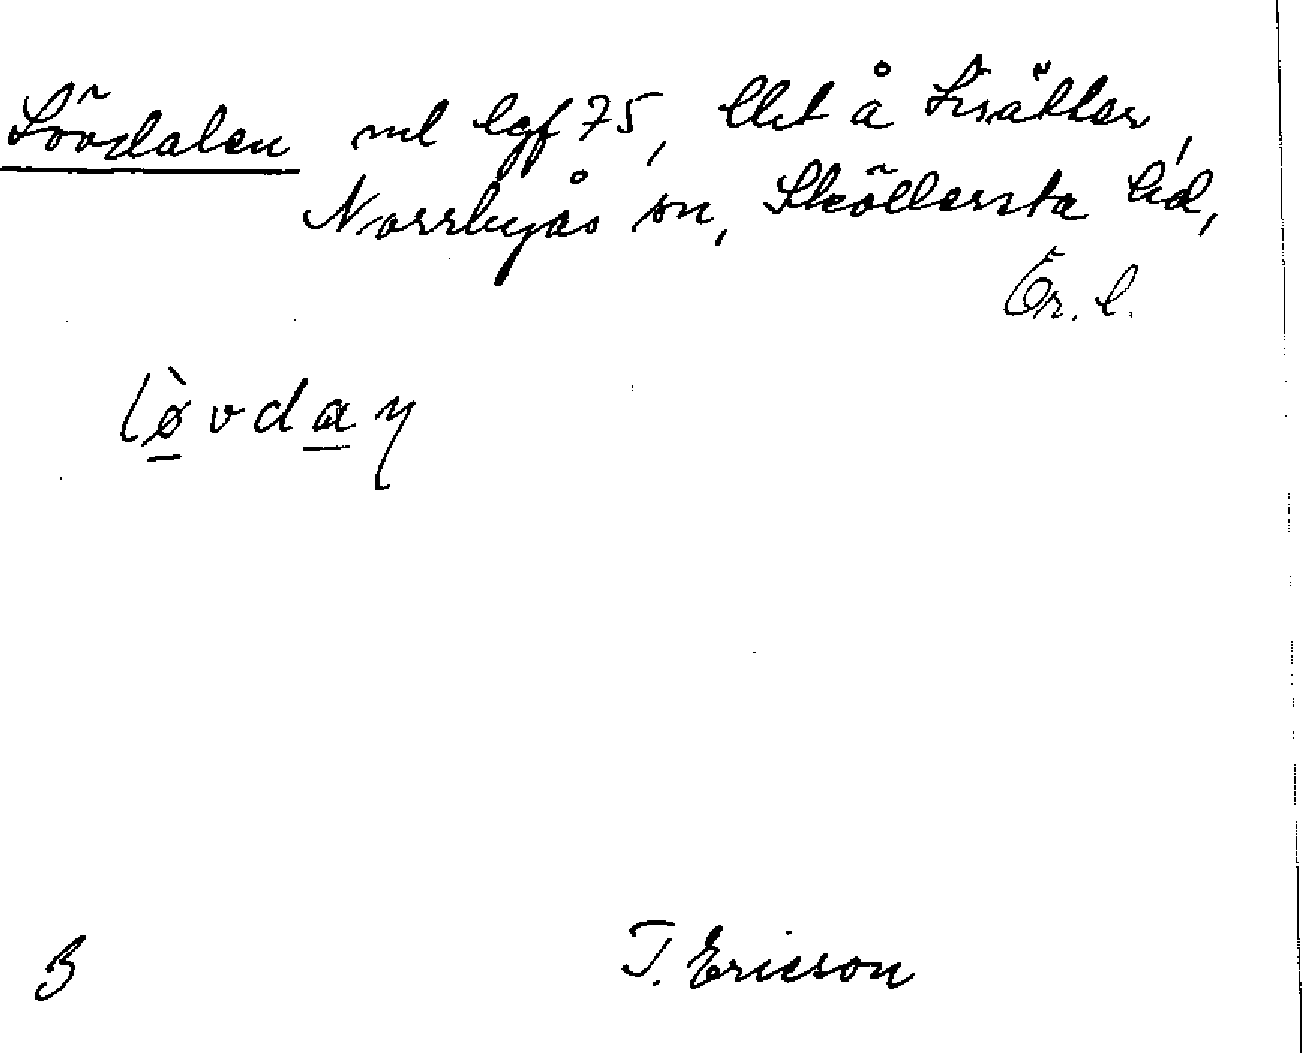 Lövdalen nl lgf 75, lht å Lisätter,
Norrbyås sn, Sköllersta hd,
Ör. l.
lø̀vdaɳ
3
T. Ericson